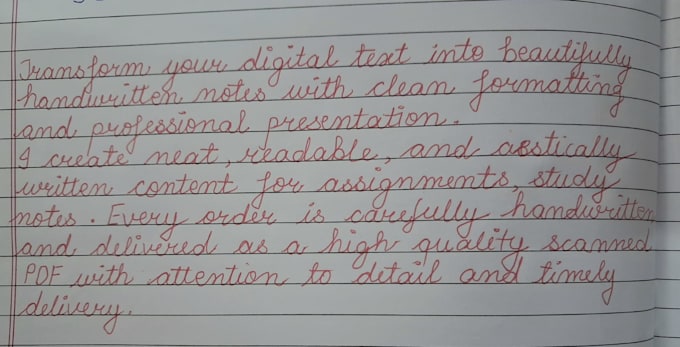 Transform your digital text into beautifully
handwritten notes with clean formatting
and professional presentation.
I create neat, readable, and aestically
written content for assignments, study
notes. Every order is carefully handwritten
and delivered as a high quality scanned
PDF with attention to detail and timely
delivery.